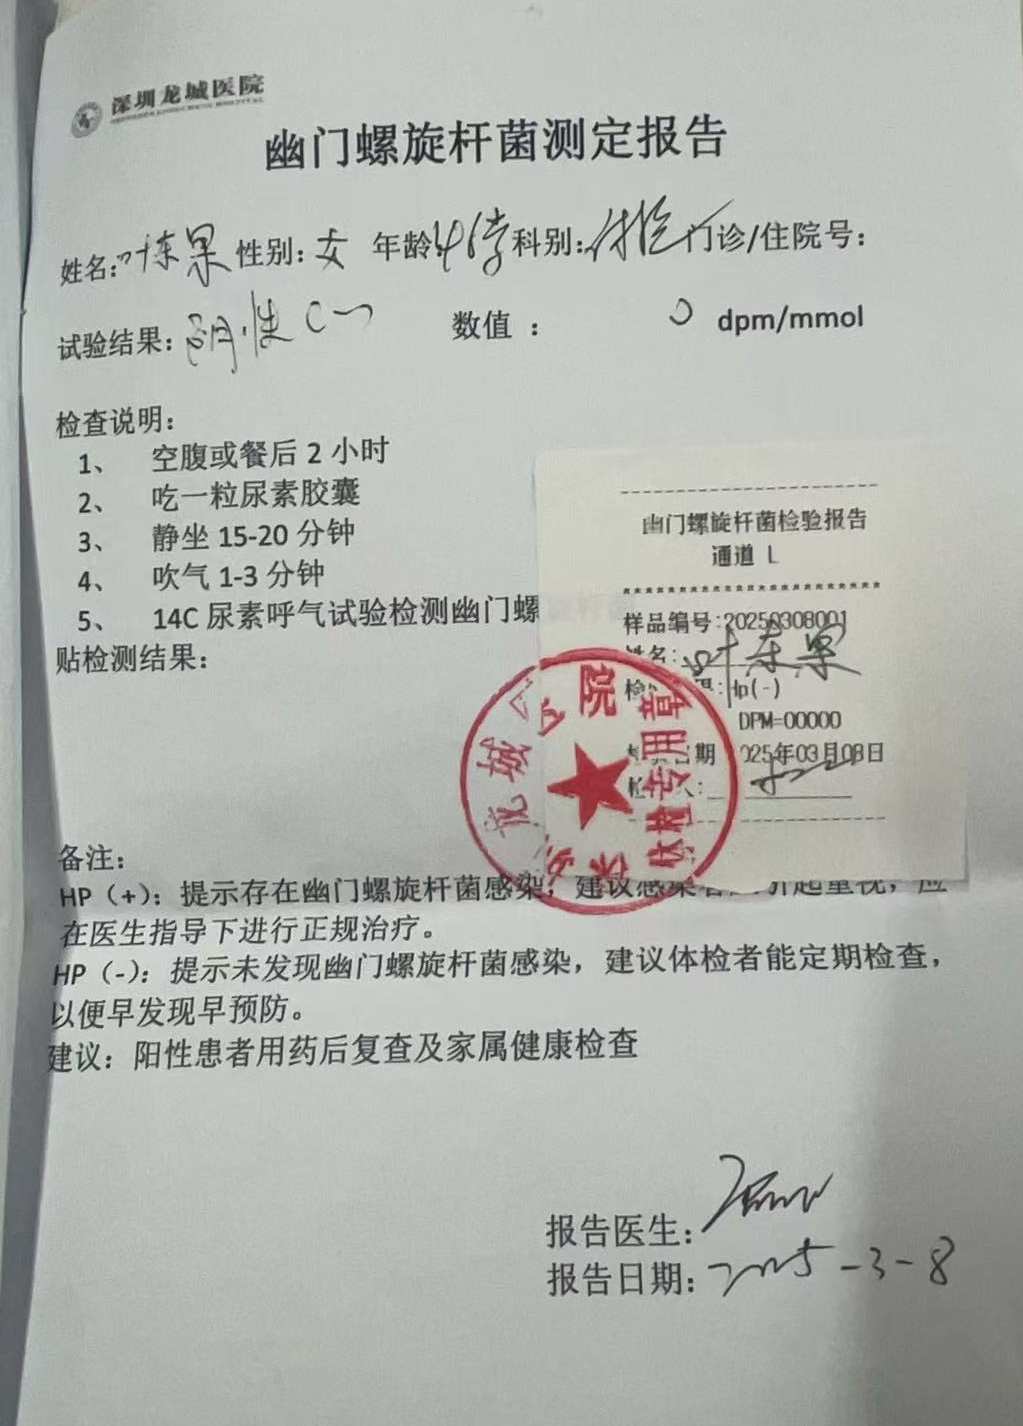 深圳龙城医院
幽门螺旋杆菌测定报告
姓名：叶东果 性别：女 年龄 科别：体检 门诊/住院号：
试验结果：阴性(-) 数值： 0 dpm/mmol
检查说明：
1、 空腹或餐后 2 小时
2、 吃一粒尿素胶囊
3、 静坐 15-20 分钟
4、 吹气 1-3 分钟
5、 14C 尿素呼气试验检测幽门螺旋杆菌
贴检测结果：
幽门螺旋杆菌检验报告
通道 L
样品编号:20250308001
姓名:叶东果
Hp(-)
DPM=00000
期 2025年03月08日
龙城医院
体检专用章
备注：
HP（+）：提示存在幽门螺旋杆菌感染，建议感染者 引起重视，应
在医生指导下进行正规治疗。
HP（-）：提示未发现幽门螺旋杆菌感染，建议体检者能定期检查，
以便早发现早预防。
建议：阳性患者用药后复查及家属健康检查
报告医生：
报告日期：2025-3-8